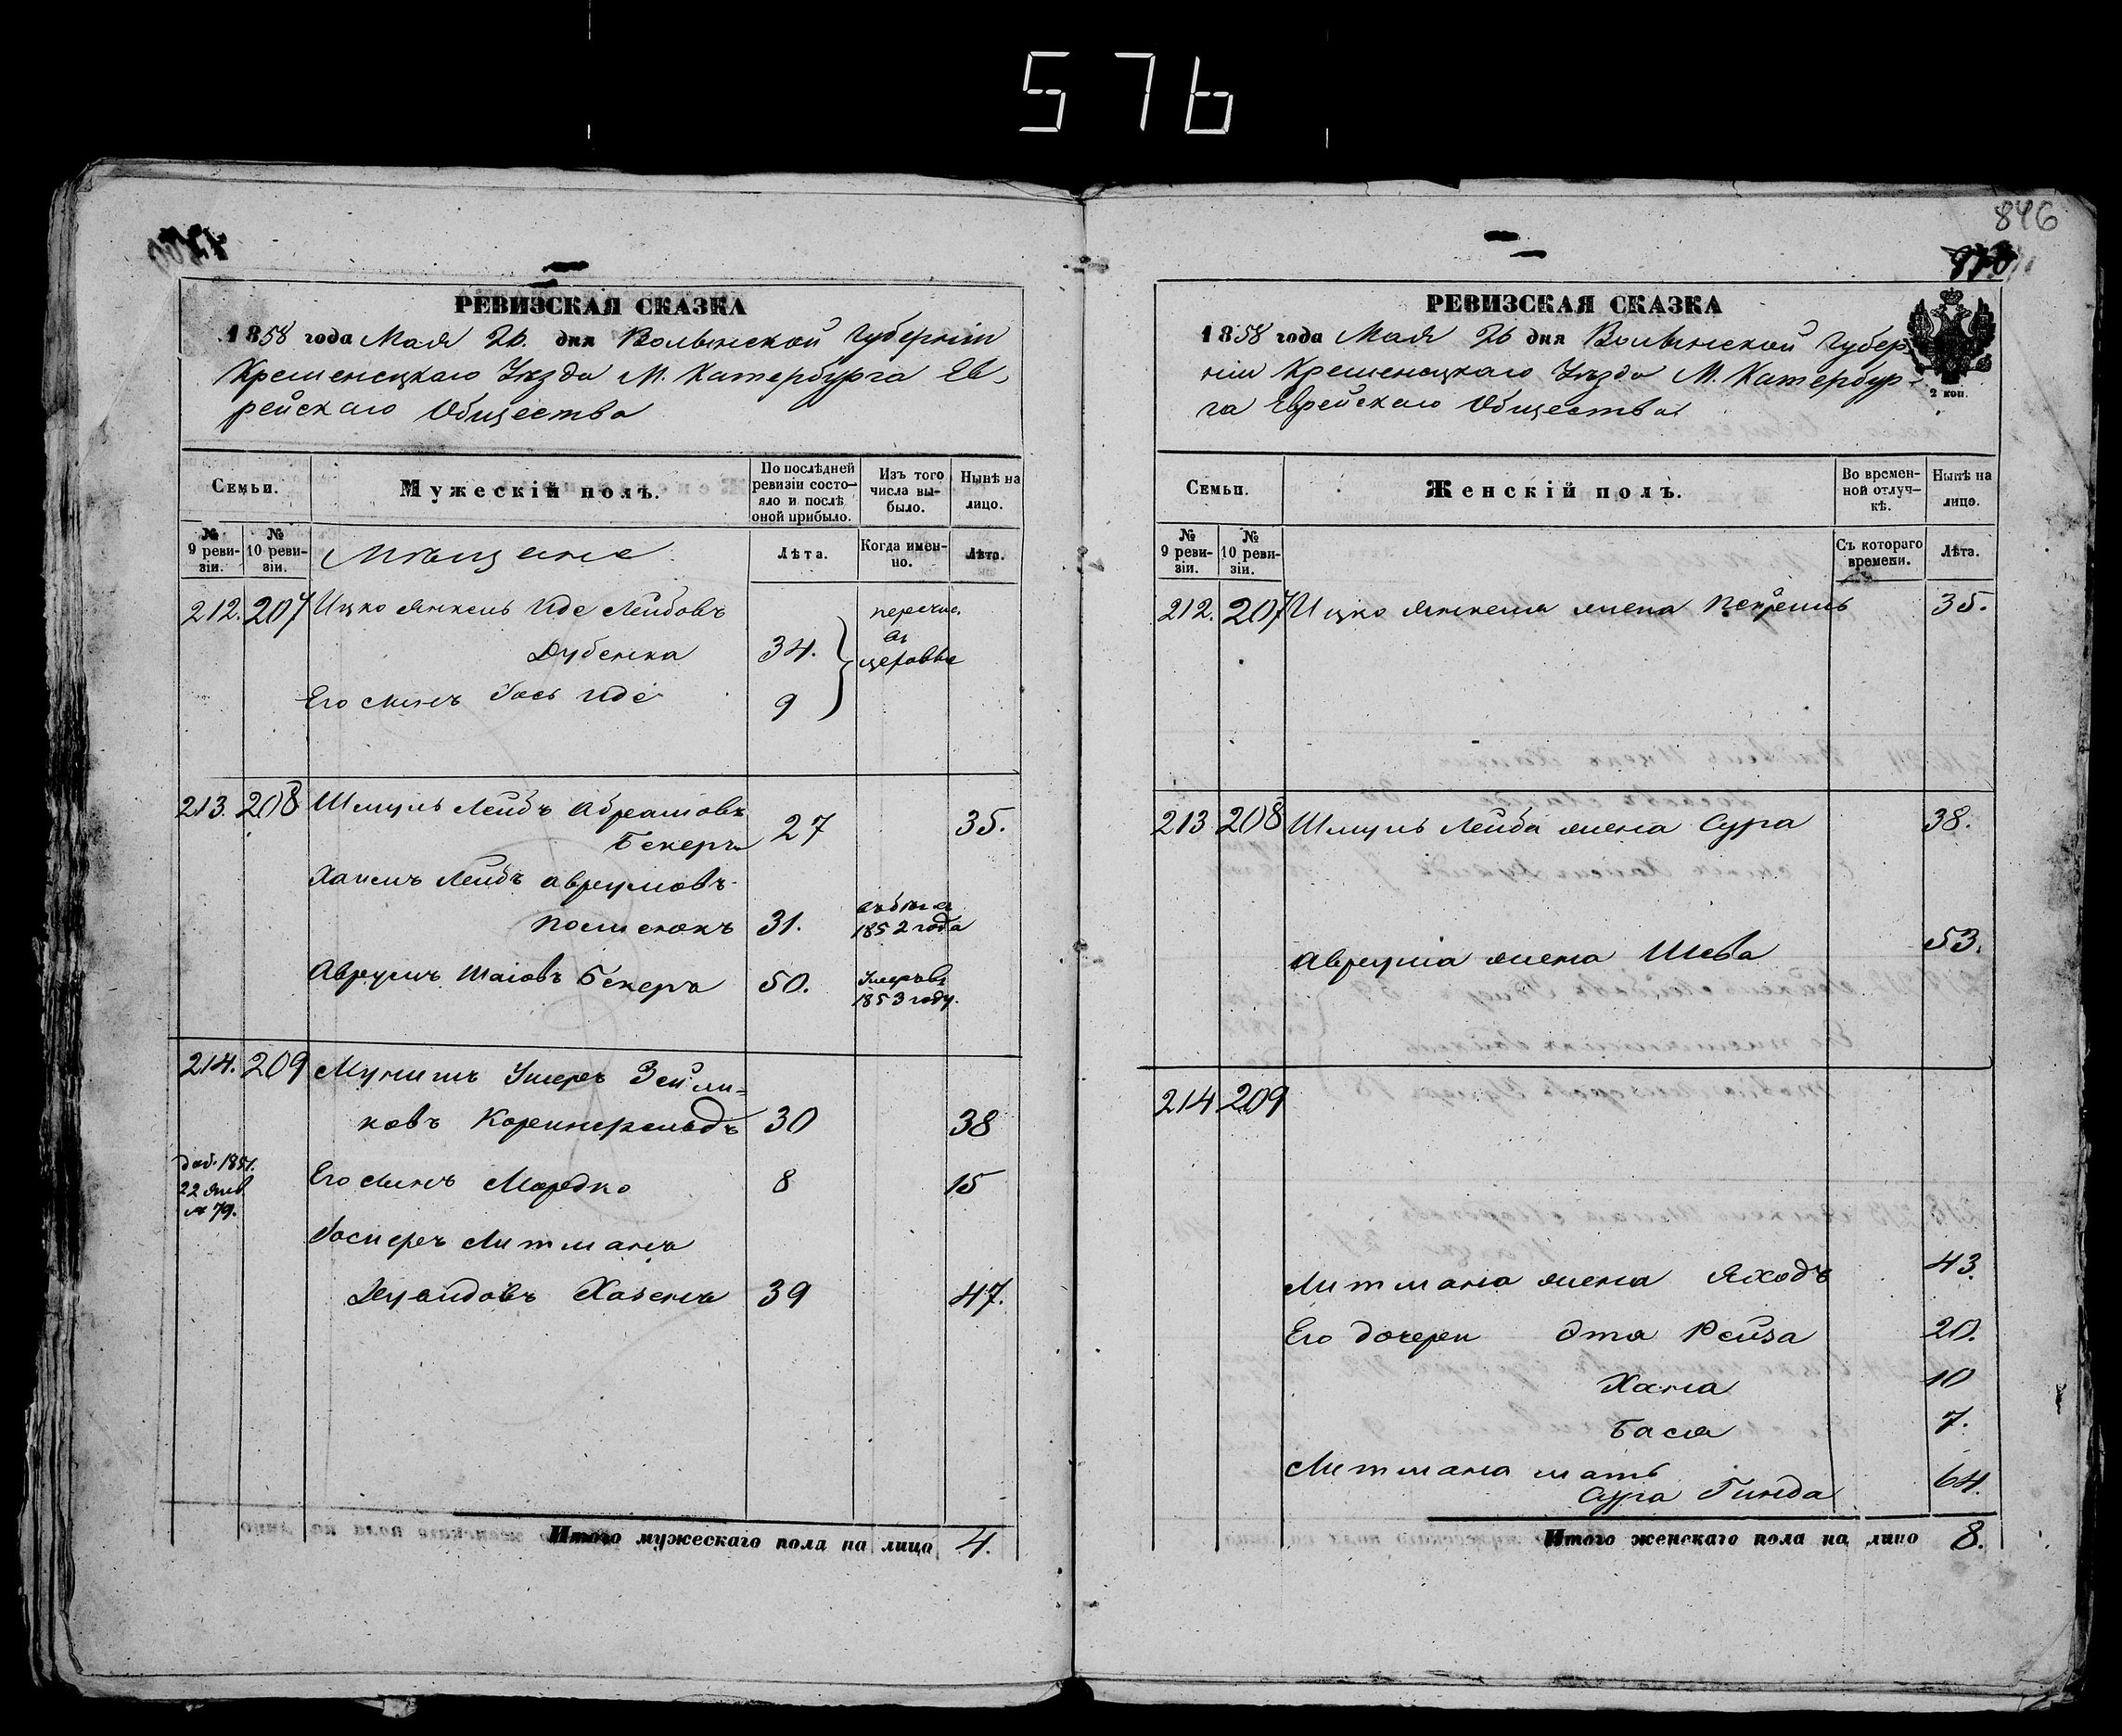 576
846
РЕВИЗСКАЯ СКАЗКА
1858 года Мая 26. дня Волынской Губерніи
Кременецкаго Уѣзда М. Катербурга Ев-
рейскаго Общества
Семьи.
Мужескій полъ.
По послѣдней ревизіи состо-
яло и послѣ
оной прибыло.
Изъ того
числа вы-
было.
Нынѣ на
лицо.
№
9 реви-
зіи.
№
10 реви-
зіи.
Мѣщане
Лѣта.
Когда имен-
но.
Лѣта.
212. 207 Ицко Янкель Иде Лейбовъ
Дубенка 34.
Его сынъ Иось Иде 9
213. 208 Шмуль Лейбъ Абрамовъ
Бекеръ 27 35.
Хаимъ Лейбъ Аврумовъ
31. 1852 года
Аврумъ Шаіовъ Бекеръ 50. Умеръ въ
1853 году.
214. 209 Мунишъ Умеръ Зейли-
ковъ 30 38
22 Янв
№ 79.
Его сынъ Мордко 8 15
Литмана
Дувидовъ Хазенъ 39 47.
Итого мужескаго пола на лицо 4.
РЕВИЗСКАЯ СКАЗКА
1858 года Мая 26 дня Волынской Губер
ніи Кременецкаго Уѣзда М. Катербур-
га Еврейскаго Общества
2 коп.
Семьи.
Женскій полъ.
Во времен-
ной отлуч-
кѣ.
Нынѣ на
лицо.
№
9 реви-
зіи.
№
10 реви-
зіи.
Съ котораго
времени.
Лѣта.
212. 207 Ицко Янкеля жена 35.
213 208 Шмуль Лейба жена Сура 38.
Аврума жена Шева 53.
214 209
Литмана жена 43.
Его дочери Эта Рейза 20.
Хана 10
Бася 7.
Литмана мать
Сура Гинда 64.
Итого женскаго пола на лицо 8.